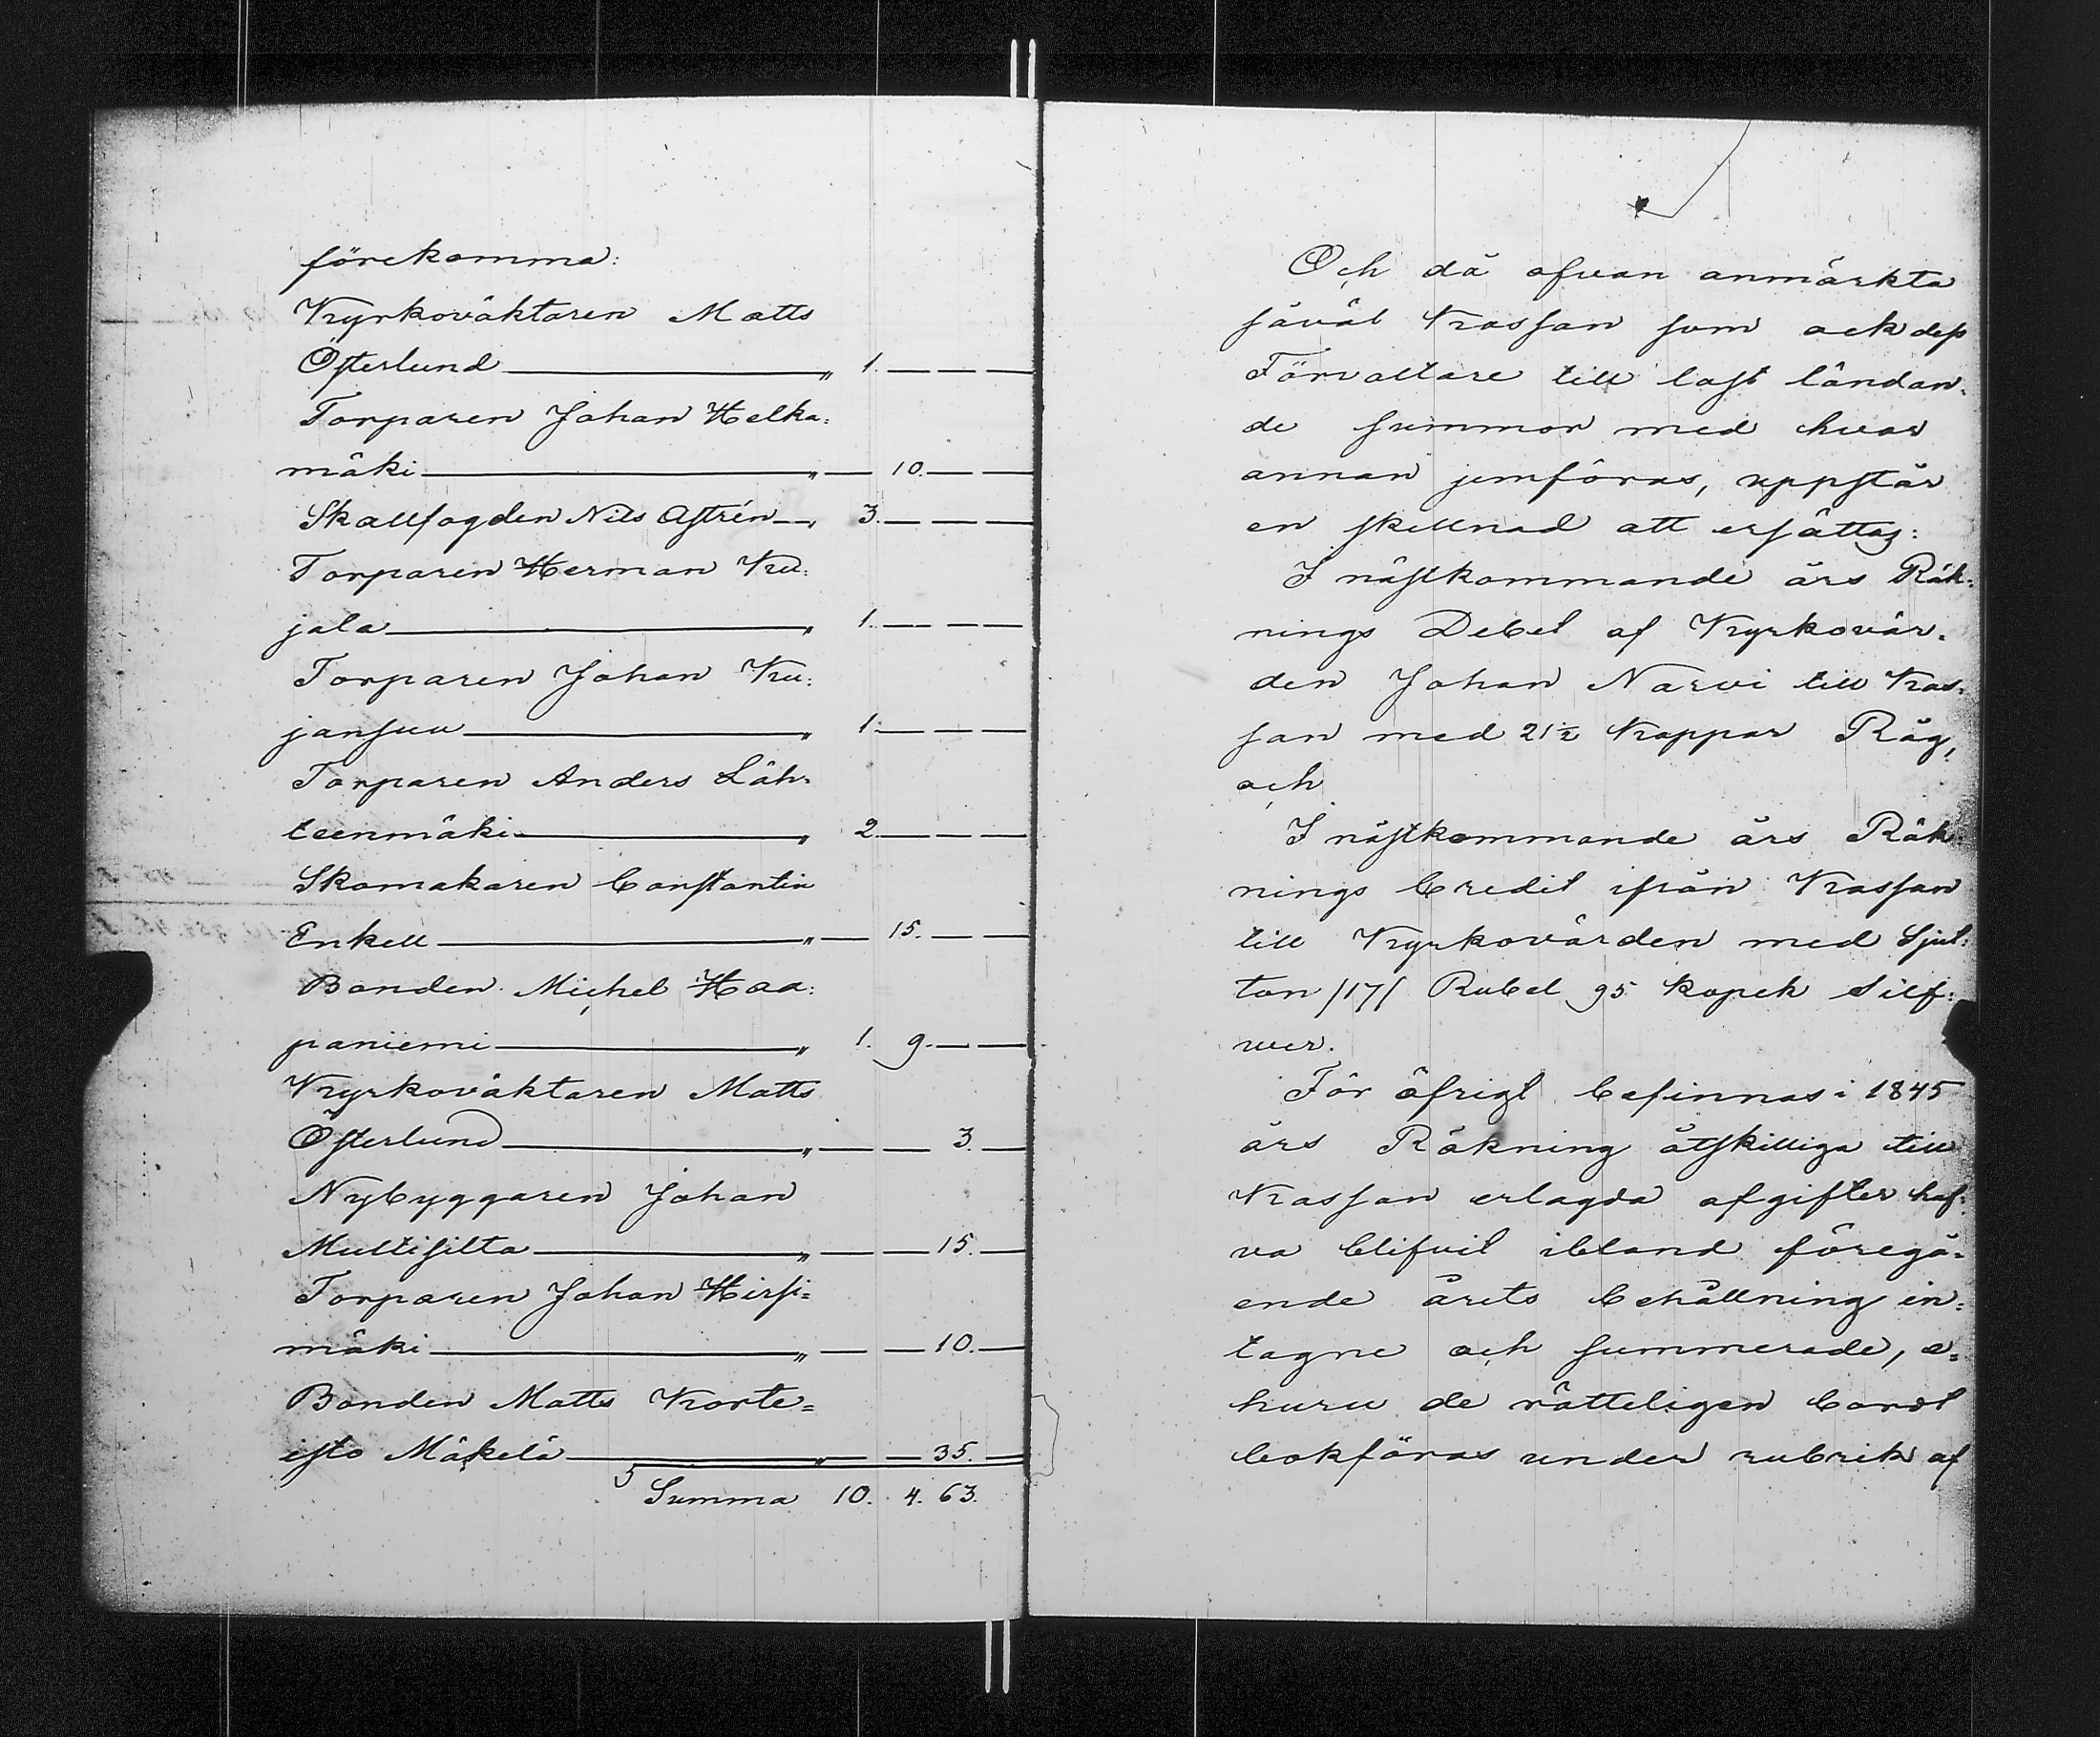 förekomma:
Kyrkoväktaren Matts
Österlund — „ 1. — — —
Torparen Johan Helka:
mäki — „ — 10. — —
Skallfogden Nils Astrén — „ 3. — — —
Torparen Herman Ku:
jala — „ 1. — — —
Torparen Johan Ku:
jansuu — „ 1. — — —
Torparen Anders Läh:
teenmäki — „ 2. — — —
Skomakaren Constantin
Enkell — „ — 15. — —
Bonden Michel Haa:
paniemi — „ 1. 9. — —
Kyrkoväktaren Matts
Österlund — „ — — 3. —
Nybyggaren Johan
Multisilta — „ — — 15. —
Torparen Johan Hirsi=
mäki — „ — — 10. —
Bonden Matts Korte=
isto Mäkelä — „ — — 35. —
Summa 10. 4. 63.
Och då ofvan anmärkta
såväl Kassan som ock dess
Förvaltare till last ländan:
de summor med hvar
annan jemföras, uppstår
en skillnad att ersättas:
I nästkommande års Räk:
nings Debet af Kyrkovär:
den Johan Narvi till Kas:
san med 21½ Kappar Råg,
och
I nästkommande års Räk:
nings Credit ifrån Kassan
till Kyrkovärden med Sjut:
ton /17/ Rubel 95 kopek Silf:
wer.
För öfrigt befinnas i 1845
års Räkning åtskilliga till
Kassan erlagda afgifter haf:
va blifvit ibland föregå=
ende årets behållning in:
tagne och summerade, e=
huru de rätteligen bordt
bokföras under rubrik af